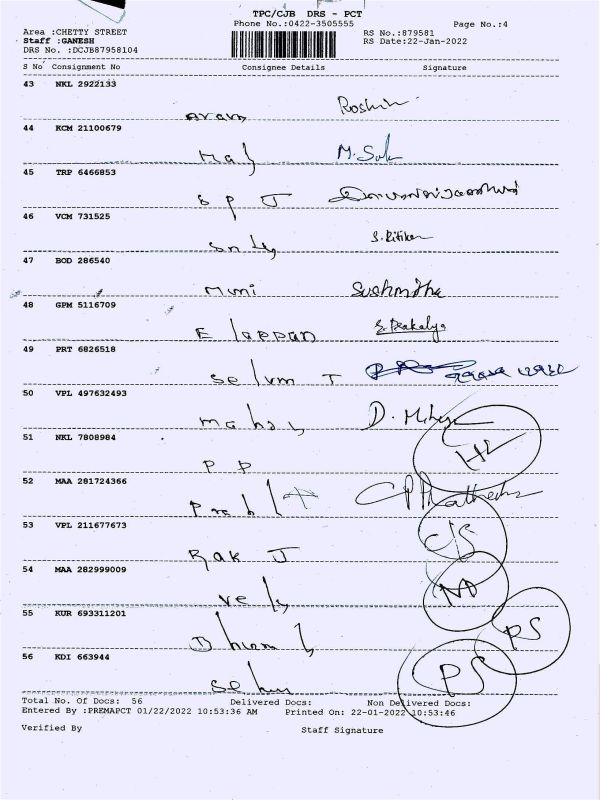 TPC/CJB DRS - PCT
Phone No.:0422-3505555
Page No.:4
Area :CHETTY STREET
RS No.:879581
Staff :GANESH
RS Date:22-Jan-2022
DRS No. :DCJB87958104
S No Consignment No Consignee Details Signature
43 NKL 2922133
Roshin
44 KCM 21100679
45 TRP 6466853
S P J
46 VCM 731525
S. Ritika
47 BOD 286540
Muni Sushmitha
48 GPM 5116709
E lappan
49 PRT 6826518
Selvm T
50 VPL 497632493
D.
51 NKL 7808984
P P
52 MAA 281724366
53 VPL 211677673
Rak J
54 MAA 282999009
55 KUR 693311201
PS
56 KDI 663944
PS
Total No. Of Docs: 56 Delivered Docs: Non Delivered Docs:
Entered By :PREMAPCT 01/22/2022 10:53:36 AM Printed On: 22-01-2022 10:53:46
Verified By Staff Signature